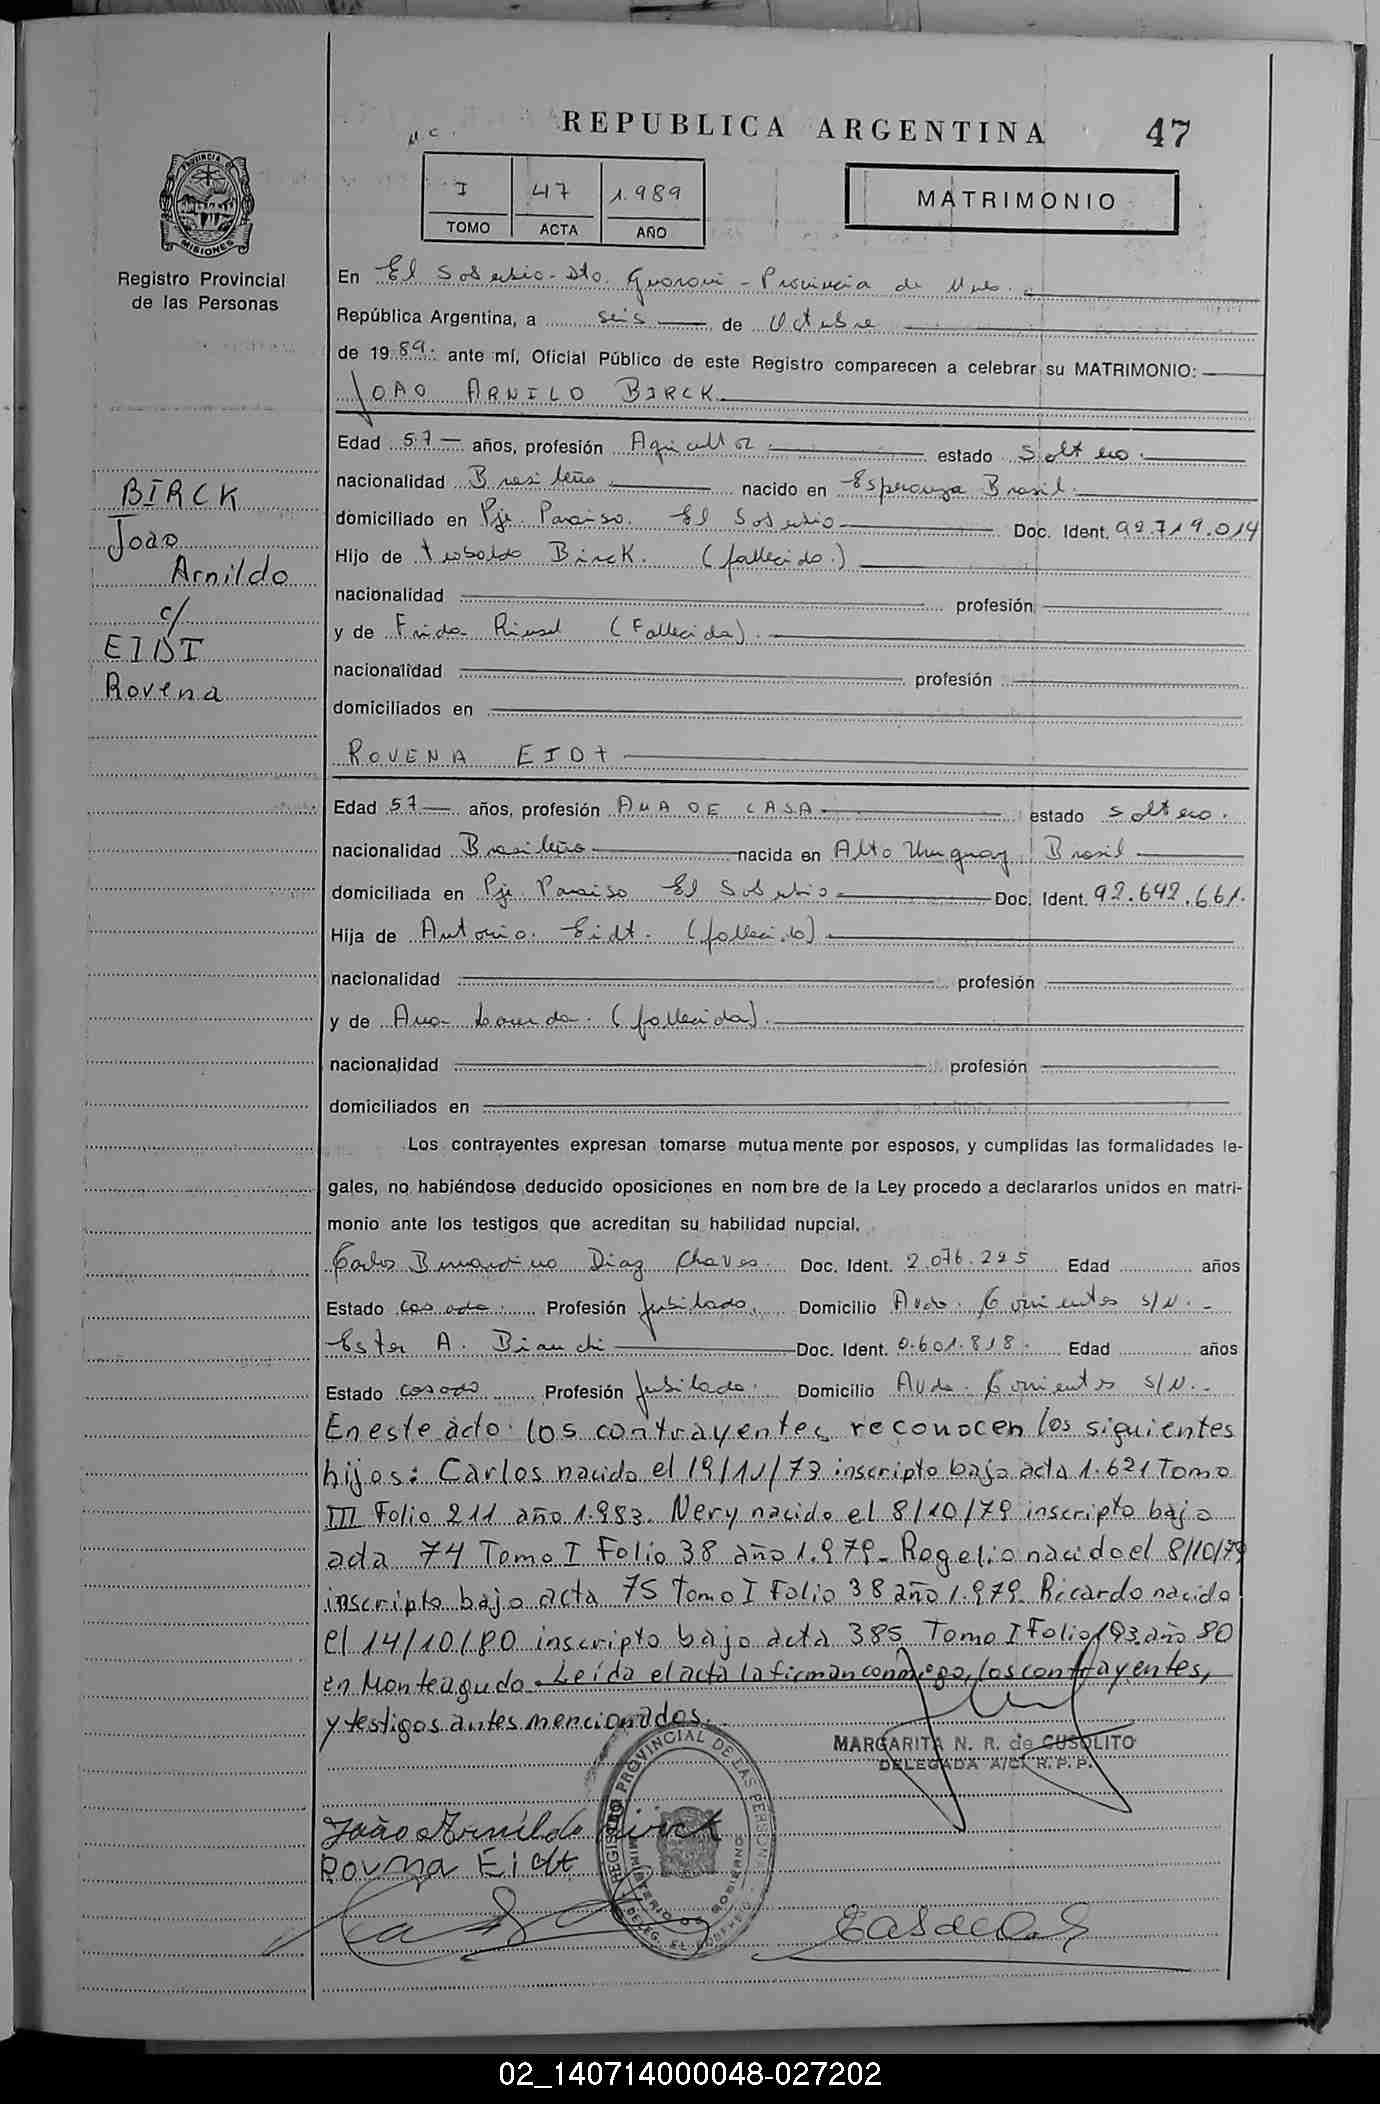 REPUBLICA ARGENTINA 47
I 47 1.989
TOMO ACTA AÑO
MATRIMONIO
PROVINCIA DE MISIONES
Registro Provincial
de las Personas
BIRCK
João
Arnildo
c/
EIDT
Rovena
En El Soberbio - Dto. Guarani - Provincia de Mnes.
República Argentina, a seis de Octubre
de 1989. ante mí, Oficial Público de este Registro comparecen a celebrar su MATRIMONIO:
JOAO ARNILO BIRCK
Edad 57 años, profesión Agricultor estado soltero.
nacionalidad Brasileño nacido en Esperanza Brasil.
domiciliado en Pje Paraiso. El Soberbio Doc. Ident. 92.719.014
Hijo de teobaldo Birck. (fallecido.)
nacionalidad profesión
y de Frida (Fallecida).
nacionalidad profesión
domiciliados en
ROVENA EIDt
Edad 57 años, profesión AMA DE CASA estado soltero.
nacionalidad Brasileña nacida en Alto Uruguay Brasil
domiciliada en Pje. Paraiso El Soberbio Doc. Ident. 92.642.661.
Hija de Antonio. Eidt. (fallecido)
nacionalidad profesión
y de Ana (fallecida).
nacionalidad profesión
domiciliados en
Los contrayentes expresan tomarse mutuamente por esposos, y cumplidas las formalidades le-
gales, no habiéndose deducido oposiciones en nombre de la Ley procedo a declararlos unidos en matri-
monio ante los testigos que acreditan su habilidad nupcial.
Carlos Bernardino Diaz Chaves. Doc. Ident. 2.076.225 Edad años
Estado casado. Profesión Jubilado. Domicilio Avda. Corrientes s/N.-
Ester A. Bianchi Doc. Ident. 0.601.818. Edad años
Estado casado Profesión Jubilada. Domicilio Avda. Corrientes s/N.-
En este acto los contrayentes reconocen los siguientes
hijos: Carlos nacido el 19/11/73 inscripto bajo acta 1.621 Tomo
III Folio 211 año 1.983. Nery nacido el 8/10/79 inscripto bajo
acta 74 Tomo I Folio 38 año 1.979- Rogelio nacido el 8/10/79
inscripto bajo acta 75 Tomo I Folio 38 año 1.979. Ricardo nacido
el 14/10/80 inscripto bajo acta 385 Tomo I Folio 193 año 80
en Monteagudo. Leída el acta la firman conmigo, los contrayentes,
y testigos antes mencionados.
MARGARITA N. R. de CUSOLITO
DELEGADA A/C. R.P.P.
REGISTRO PROVINCIAL DE LAS PERSON
MINISTERIO DE GOBIERNO
DELEG. EL SOBERBIO
João Arnildo Birck
Rovena Eidt
02_140714000048-027202